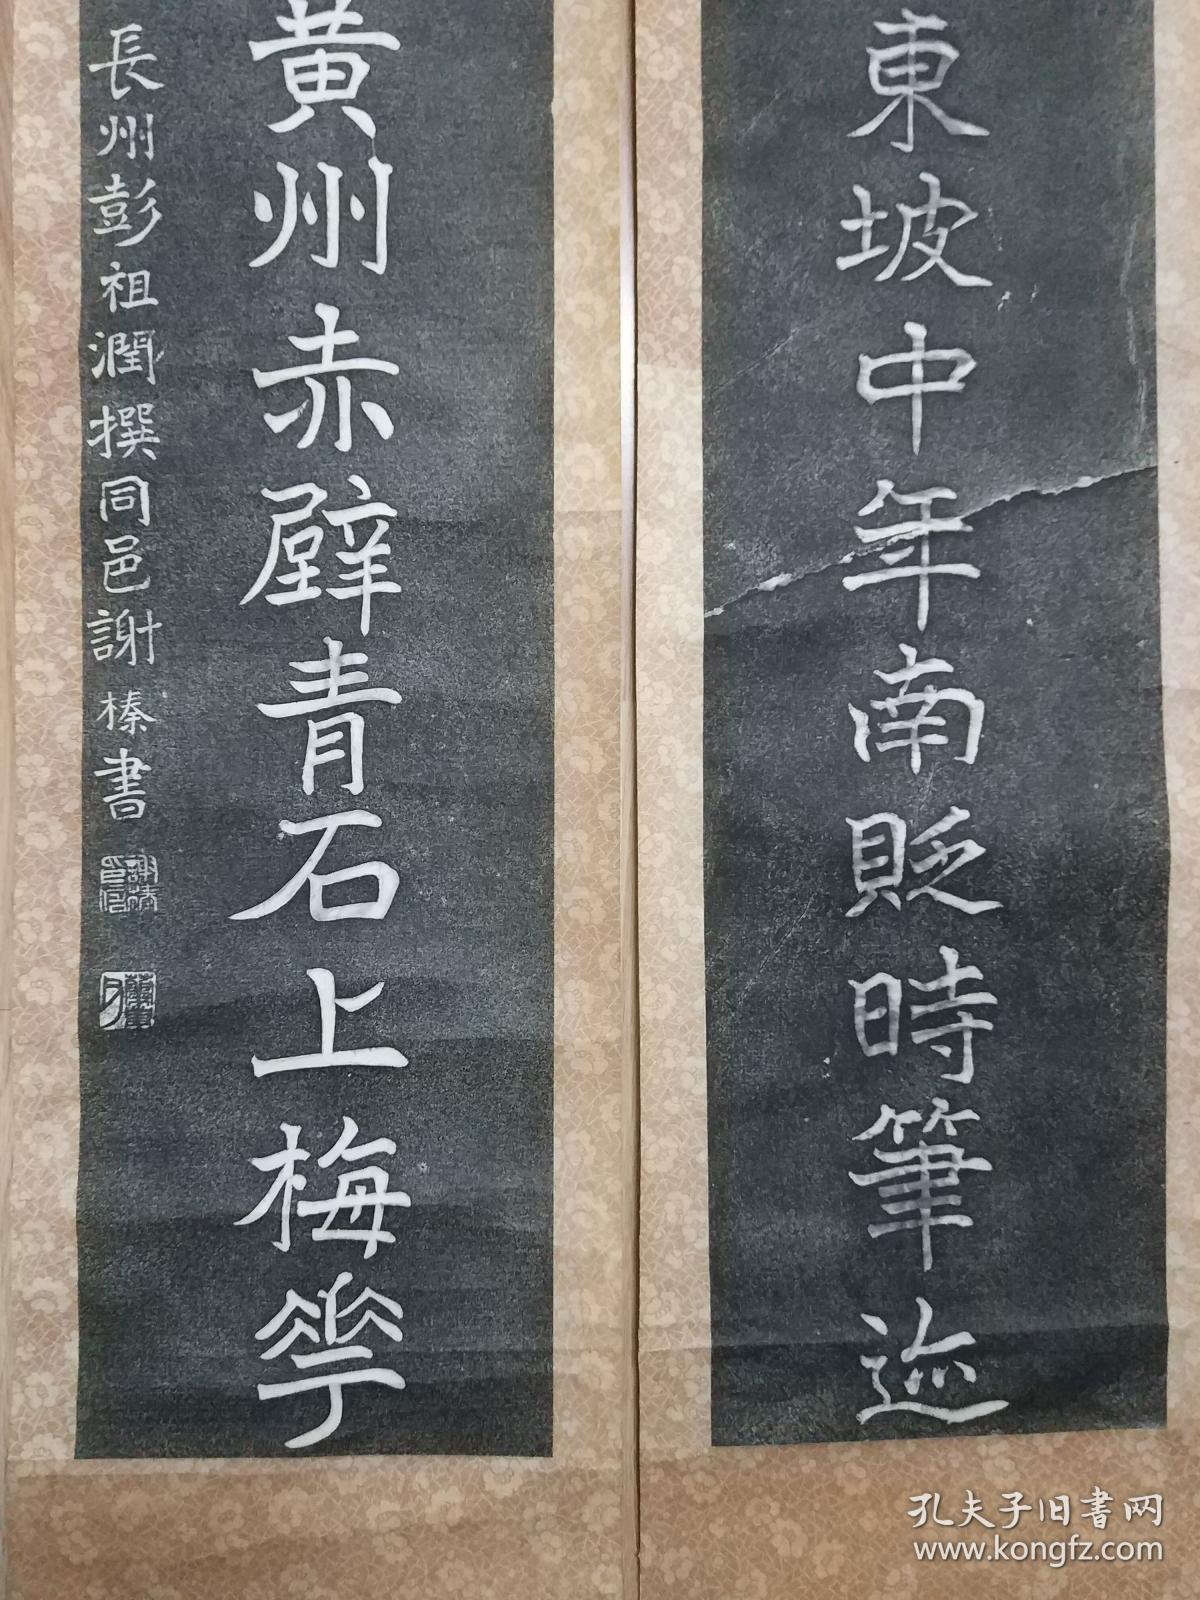 東坡中年南貶時筆迹
黃州赤壁青石上梅花
長州彭祖潤撰同邑謝榛書
孔夫子旧书网
www.kongfz.com